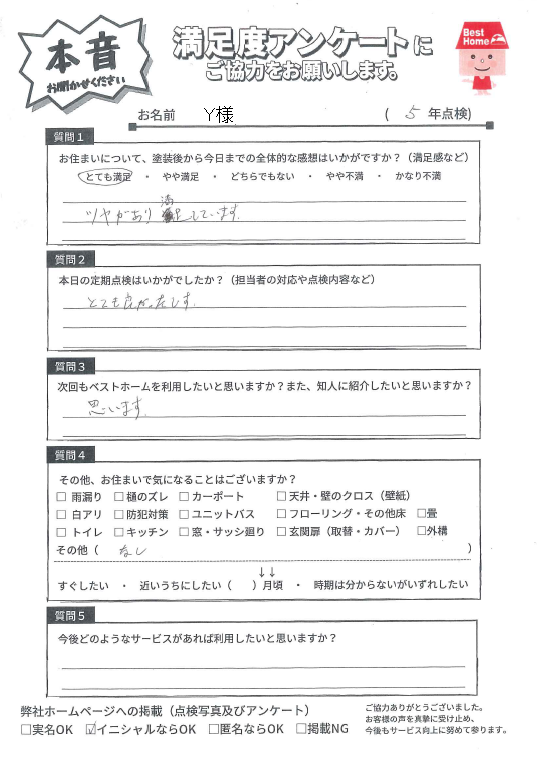 本音
お聞かせください
満足度アンケートに
ご協力をお願いします。
Best
Home
お名前 Y様 ( 5 年点検)
質問1
お住まいについて、塗装後から今日までの全体的な感想はいかがですか？（満足感など）
とても満足 ・ やや満足 ・ どちらでもない ・ やや不満 ・ かなり不満
ツヤがあり満足しています。
質問2
本日の定期点検はいかがでしたか？（担当者の対応や点検内容など）
とても良かったです。
質問3
次回もベストホームを利用したいと思いますか？また、知人に紹介したいと思いますか？
思います。
質問4
その他、お住まいで気になることはございますか？
□ 雨漏り □ 樋のズレ □ カーポート □ 天井・壁のクロス（壁紙）
□ 白アリ □ 防犯対策 □ ユニットバス □ フローリング・その他床 □畳
□ トイレ □ キッチン □ 窓・サッシ廻り □ 玄関扉（取替・カバー） □外構
その他（ なし ）
↓↓
すぐしたい ・ 近いうちにしたい（ ）月頃 ・ 時期は分からないがいずれしたい
質問5
今後どのようなサービスがあれば利用したいと思いますか？
弊社ホームページへの掲載（点検写真及びアンケート）
□実名OK ☑イニシャルならOK □匿名ならOK □掲載NG
ご協力ありがとうございました。
お客様の声を真摯に受け止め、
今後もサービス向上に努めて参ります。